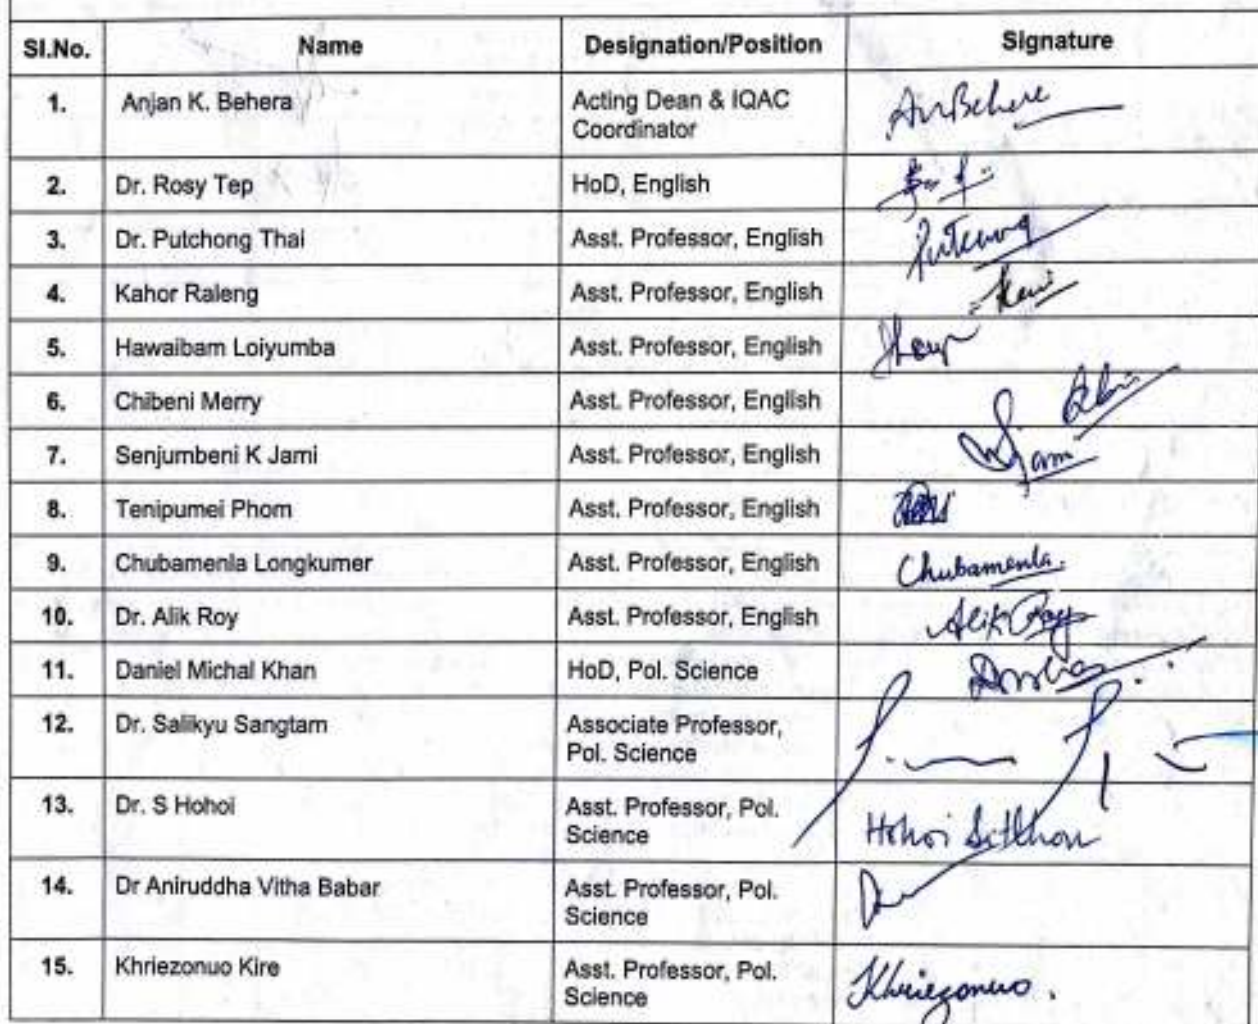 Sl.No. Name Designation/Position Signature
1. Anjan K. Behera Acting Dean & IQAC
Coordinator
2. Dr. Rosy Tep HoD, English
3. Dr. Putchong Thai Asst. Professor, English
4. Kahor Raleng Asst. Professor, English
5. Hawaibam Loiyumba Asst. Professor, English
6. Chibeni Merry Asst. Professor, English
7. Senjumbeni K Jami Asst. Professor, English Jami
8. Tenipumei Phom Asst. Professor, English
9. Chubamenla Longkumer Asst. Professor, English Chubamenla.
10. Dr. Alik Roy Asst. Professor, English Alik Roy
11. Daniel Michal Khan HoD, Pol. Science
12. Dr. Salikyu Sangtam Associate Professor,
Pol. Science
13. Dr. S Hohoi Asst. Professor, Pol.
Science Hohoi Sitlhou
14. Dr Aniruddha Vitha Babar Asst. Professor, Pol.
Science
15. Khriezonuo Kire Asst. Professor, Pol.
Science Khriezonuo.